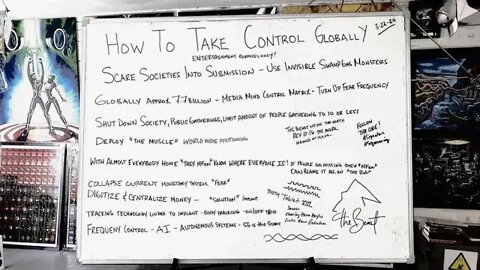 HOW TO TAKE CONTROL GLOBALLY
ENTERTAINMENT PURPOSES ONLY!
SCARE SOCIETIES INTO SUBMISSION - USE INVISIBLE SWAMP GAS MONSTERS
GLOBALLY APPROX. 7.7 BILLION - MEDIA MIND CONTROL MATRIX - TURN UP FEAR FREQUENCY
SHUT DOWN SOCIETY, PUBLIC GATHERINGS, LIMIT AMOUNT OF PEOPLE GATHERING TO 10 OR LESS
DEPLOY "THE MUSCLE" WORLD WIDE POSITIONING
THE BEAST WITHIN THE EARTH
REV 13:16 THE MARK
FOLLOW
THE LINE!
WITH ALMOST EVERYBODY HOME "THEY" KNOW WHERE EVERYONE IS! IF PEOPLE GO MISSING THEY
CAN BLAME IT ALL ON "THE
COLLAPSE CURRENT MONETARY SYSTEM "FEAR"
DIGITIZE & CENTRALIZE MONEY - "SOLUTION" IMPLANT
TRACKING TECHNOLOGY LINKED TO IMPLANT - BODY TRACKING
FREQUENCY CONTROL - A.I. - AUTONOMOUS SYSTEMS - 5G IS THE
Tablet
the Beast